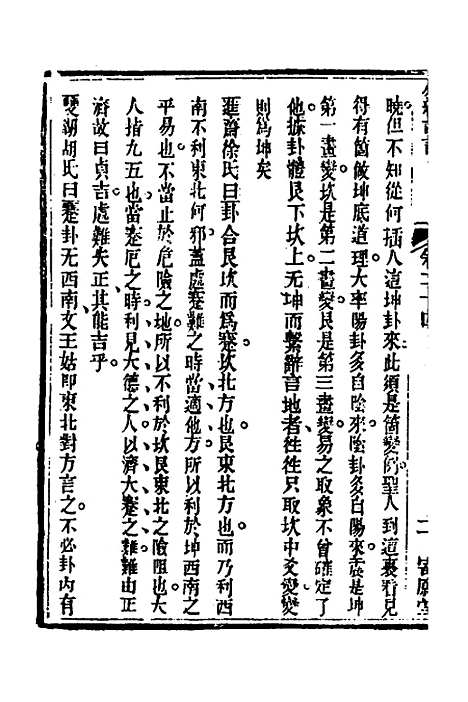 曉但不知從何插入這坤卦來此須是箇變例聖人到這裏看見
得有箇做坤底道理大率陽卦多自陰來陰卦多自陽來震是坤
第一畫變坎是第二畫變艮是第三畫變易之取象不曾確定了
他據卦體艮下坎上无坤而繫辭言地者往往只取坎中爻變變
則爲坤矣
進齋徐氏曰卦合艮坎而爲蹇坎北方也艮東北方也而乃利西
南不利東北何邪蓋處蹇難之時當適他方所以利於坤西南之
平易也不當止於危險之地所以不利於坎艮東北之險阻也大
人指九五也當蹇厄之時利見大德之人以濟大蹇之難難由正
濟故曰貞吉處難失正其能吉乎
雙湖胡氏曰蹇卦无西南文王姑即東北對方言之不必卦内有